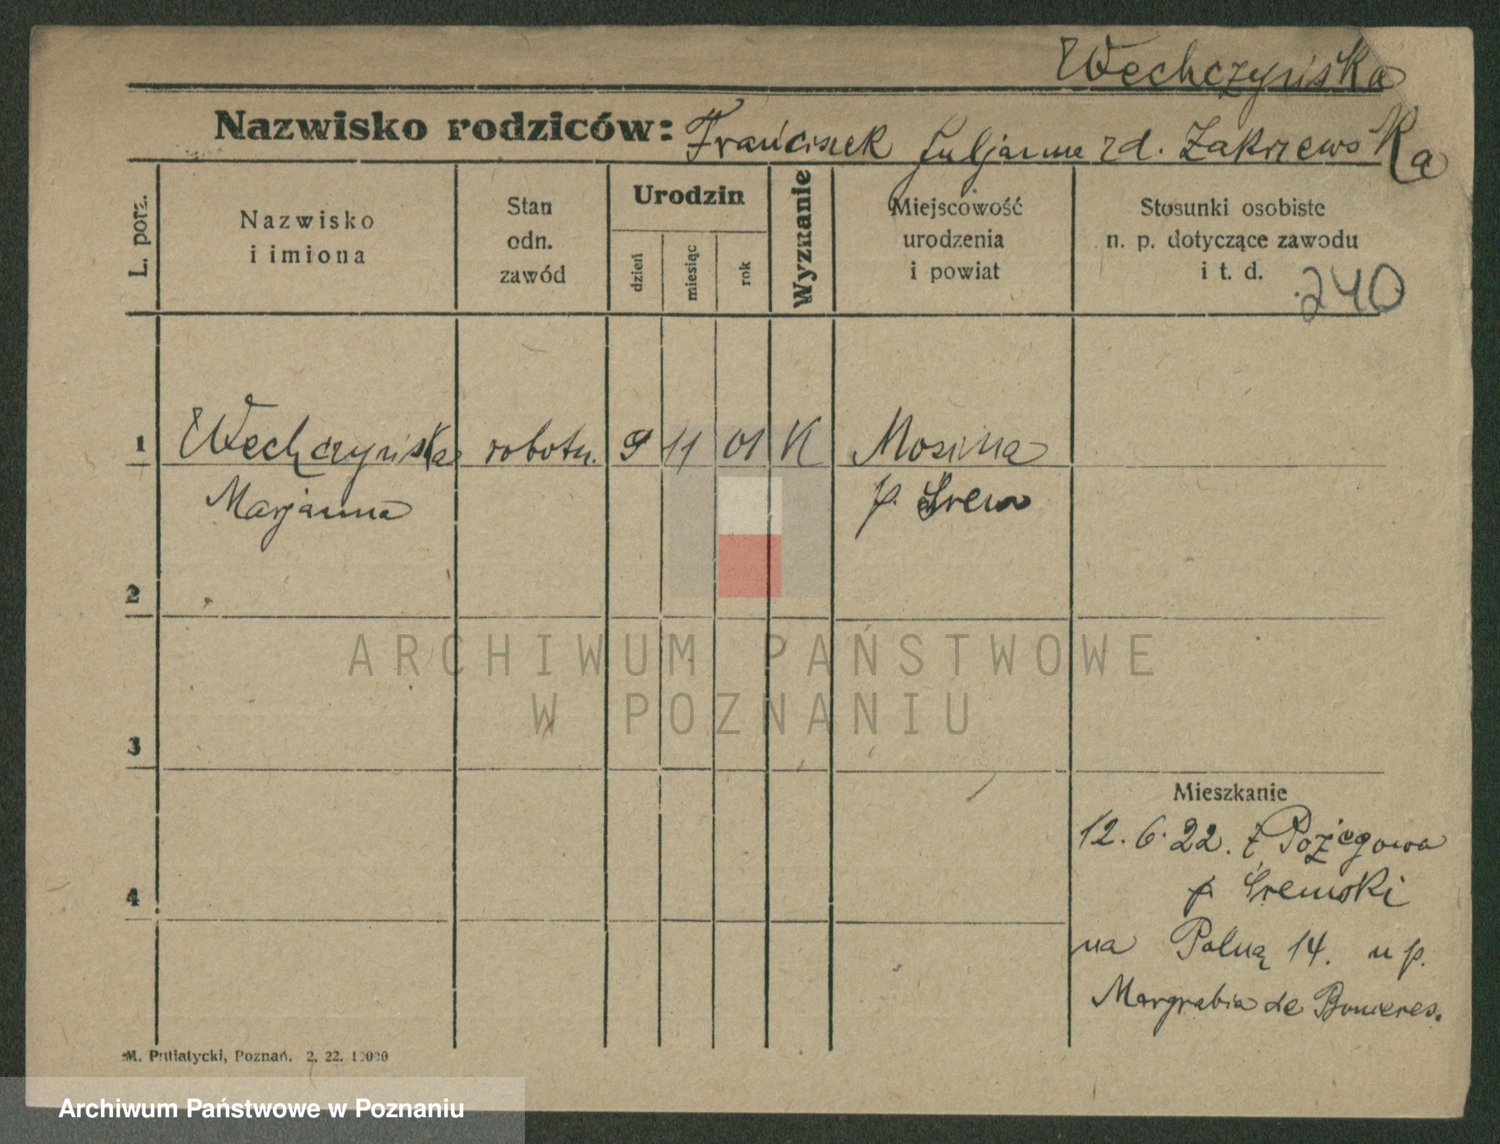 Wechczyńska
Nazwisko rodziców: Franciszek Juljanna zd. Zakrzewska
L. porz.
Nazwisko
i imiona
Stan
odn.
zawód
Urodzin
dzień
miesiąc
rok
Wyznanie
Miejscowość
urodzenia
i powiat
Stosunki osobiste
n. p. dotyczące zawodu
i t. d.
240
1 Wechczyńska robotn. 9 11 01 K Mosina
Marjanna p. Śrem
2
3
4
Mieszkanie
12. 6. 22. z Pożegowa
p. Śremski
na Polną 14. u p.
Margrabia de Bonieres.
M. Putiatycki, Poznań. 2. 22. 10000
ARCHIWUM PAŃSTWOWE
W POZNANIU
Archiwum Państwowe w Poznaniu